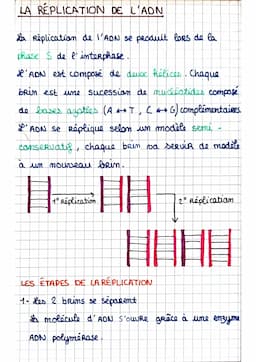 LA RÉPLICATION DE L'ADN
La Réplication de l'ADN se produit lors de la
phase S de l'interphase.
L'ADN est composé de deux hélices. Chaque
brin est une sucession de nucléotides composé
de bases azotées (A ↔ T, C ↔ G) complémentaires
L'ADN se réplique selon un modèle semi-
conservatif, chaque brin va servir de modèle
à un nouveau brin.
1° Réplication
2° Réplication
LES ÉTAPES DE LA RÉPLICATION
1- Les 2 brins se séparent
La molécule d'ADN s'ouvre grâce à une enzyme
ADN polymérase.